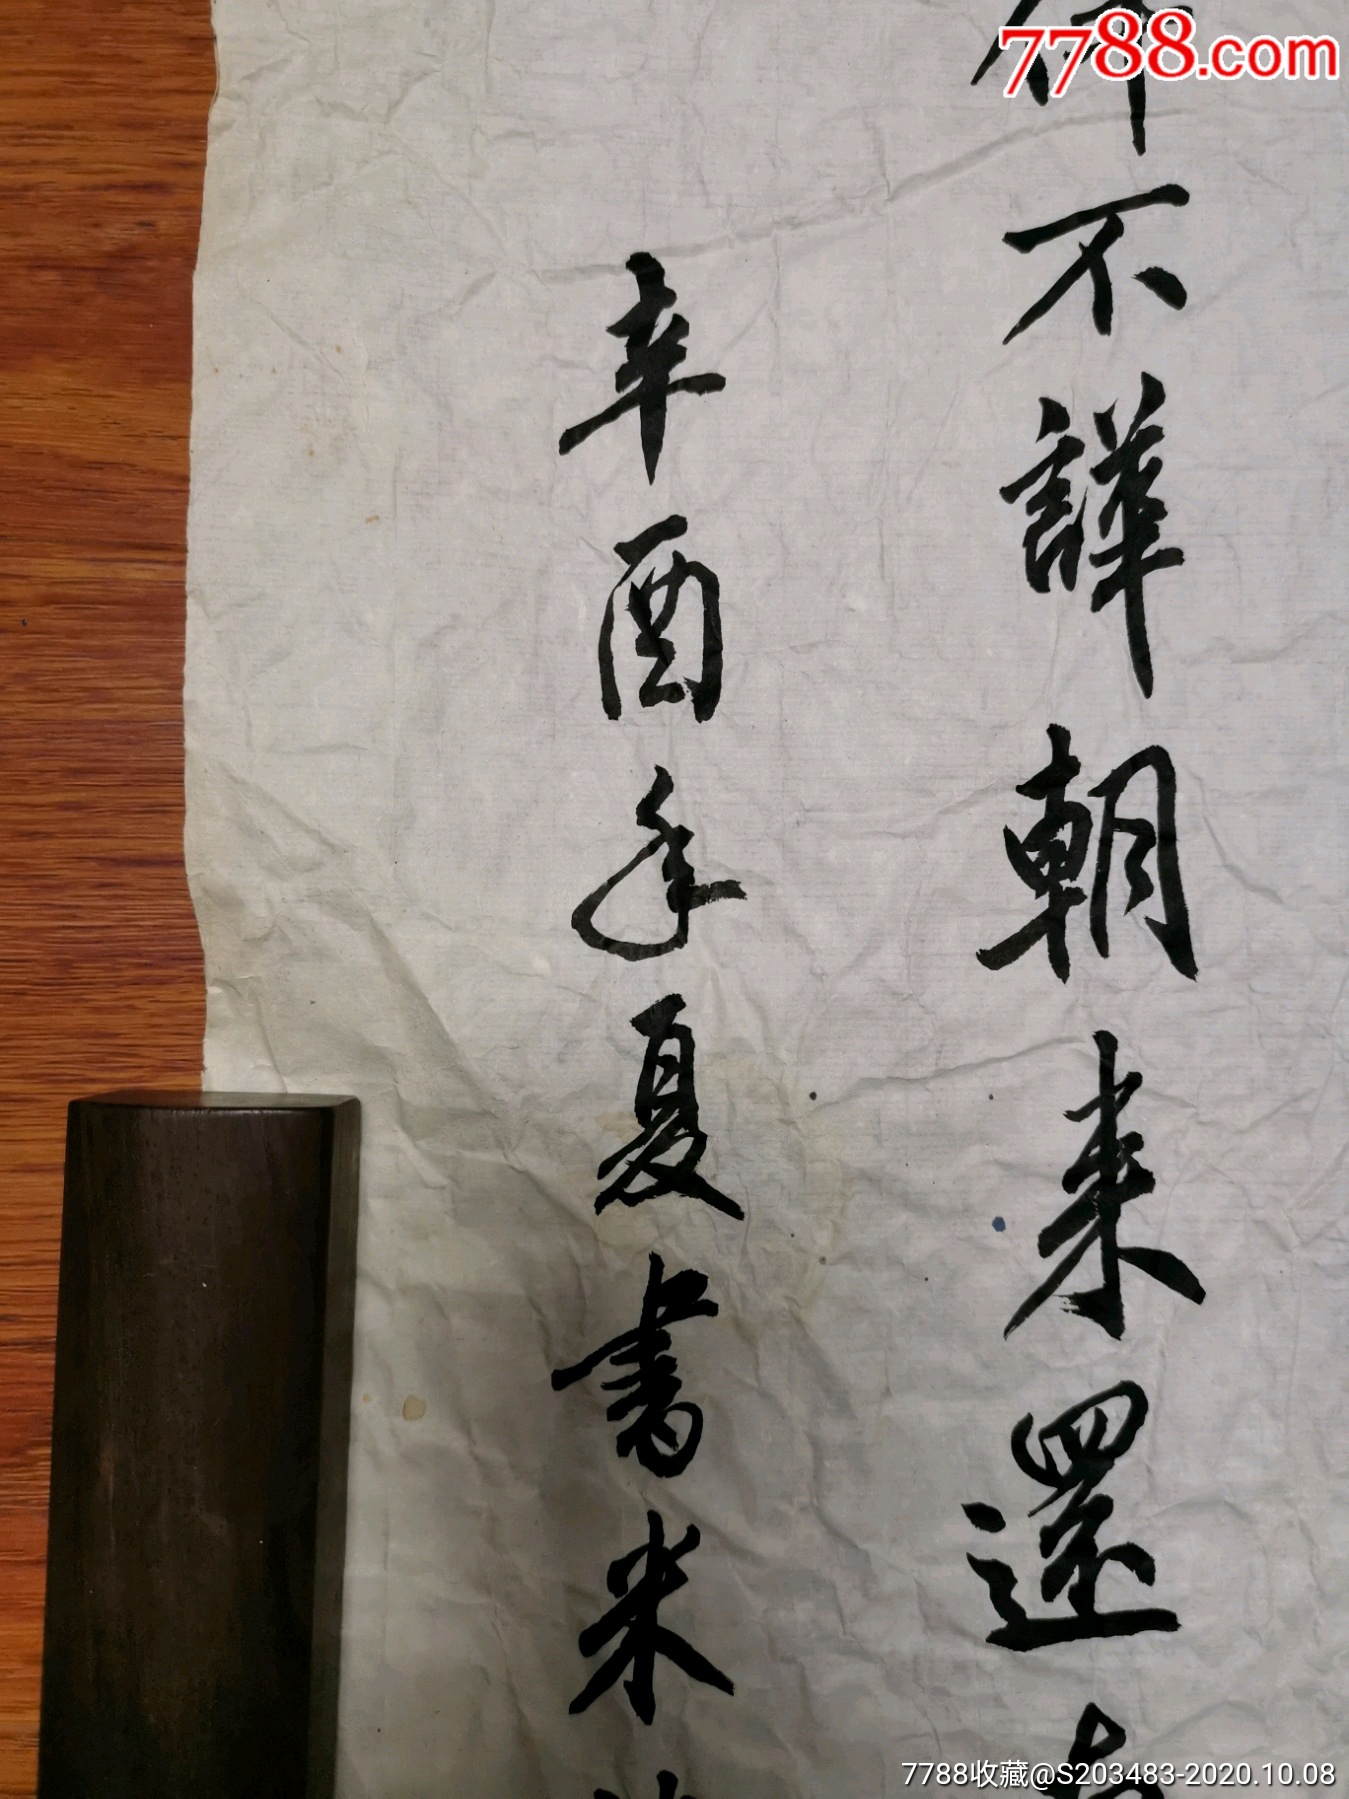 7788.com
不譁朝来還
辛酉年夏書米
7788收藏@S203483-2020.10.08